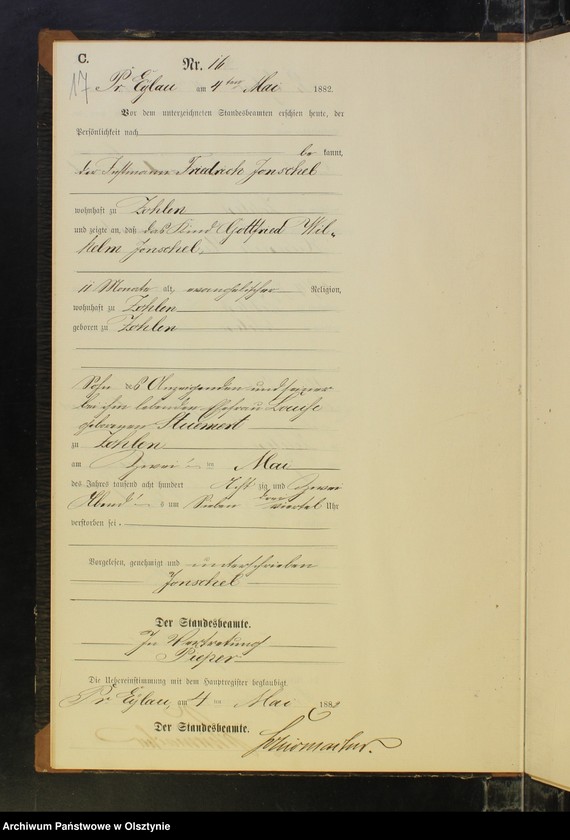 C.
Nr. 16
17
Pr. Eylau am 4ten Mai 1882.
Vor dem unterzeichneten Standesbeamten erschien heute, der
Persönlichkeit nach
be kannt,
der Instmann Friedrich Jonschel
wohnhaft zu Zohlen
und zeigte an, daß das Kind Gottfried Wil-
helm Jonschel,
11 Monate alt, evangelischer Religion,
wohnhaft zu Zohlen
geboren zu Zohlen
Sohn des Anzeigenden und seiner
bei ihm lebenden Ehefrau Louise
geborenen
zu Zohlen
am Zwei ten Mai
des Jahres tausend acht hundert Acht zig und Zwei
Abends um Sieben drei viertel Uhr
verstorben sei.
Vorgelesen, genehmigt und unterschrieben
Jonschel
Der Standesbeamte.
In Vertretung
Pieper
Die Uebereinstimmung mit dem Hauptregister beglaubigt.
Pr. Eylau, am 4 ten Mai 1882
Der Standesbeamte.
Archiwum Państwowe w Olsztynie